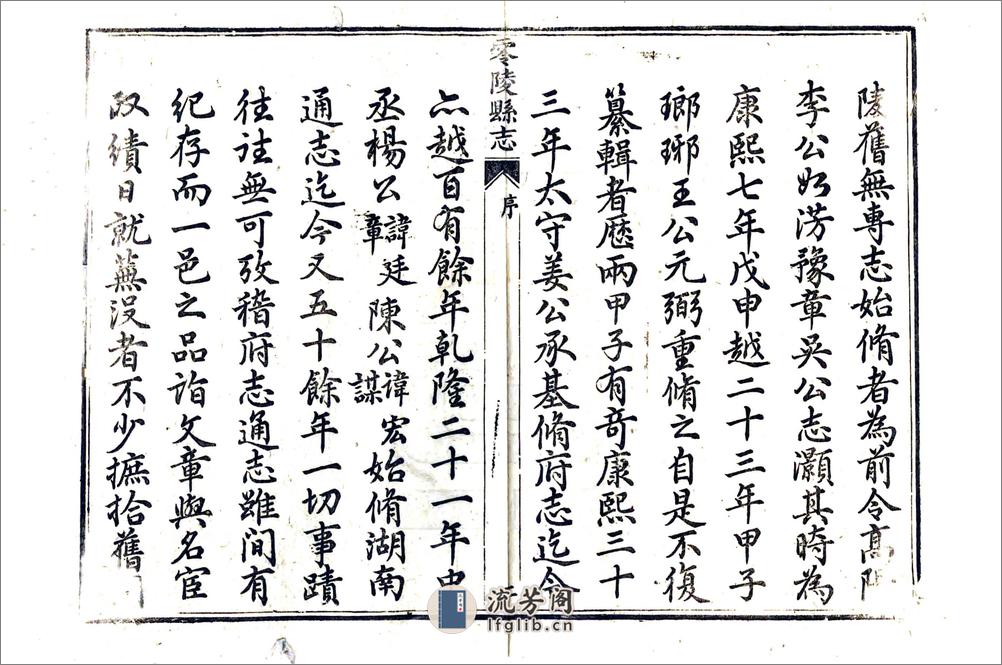 陵舊無專志始脩者為前令高陽
李公如涝豫章吳公志灝其時為
康熙七年戊申越二十三年甲子
瑯琊王公元弼重脩之自是不復
纂輯者歷兩甲子有奇康熙三十
三年太守姜公承基脩府志迄今
零陵縣志
序
亦越百有餘年乾隆二十一年中
丞楊公諱廷璋陳公諱宏謀始脩湖南
通志迄今又五十餘年一切事蹟
往往無可攷稽府志通志雖間有
紀存而一邑之品詣文章與名宦
政績日就蕪沒者不少摭拾舊
流芳阁
lfglib.cn